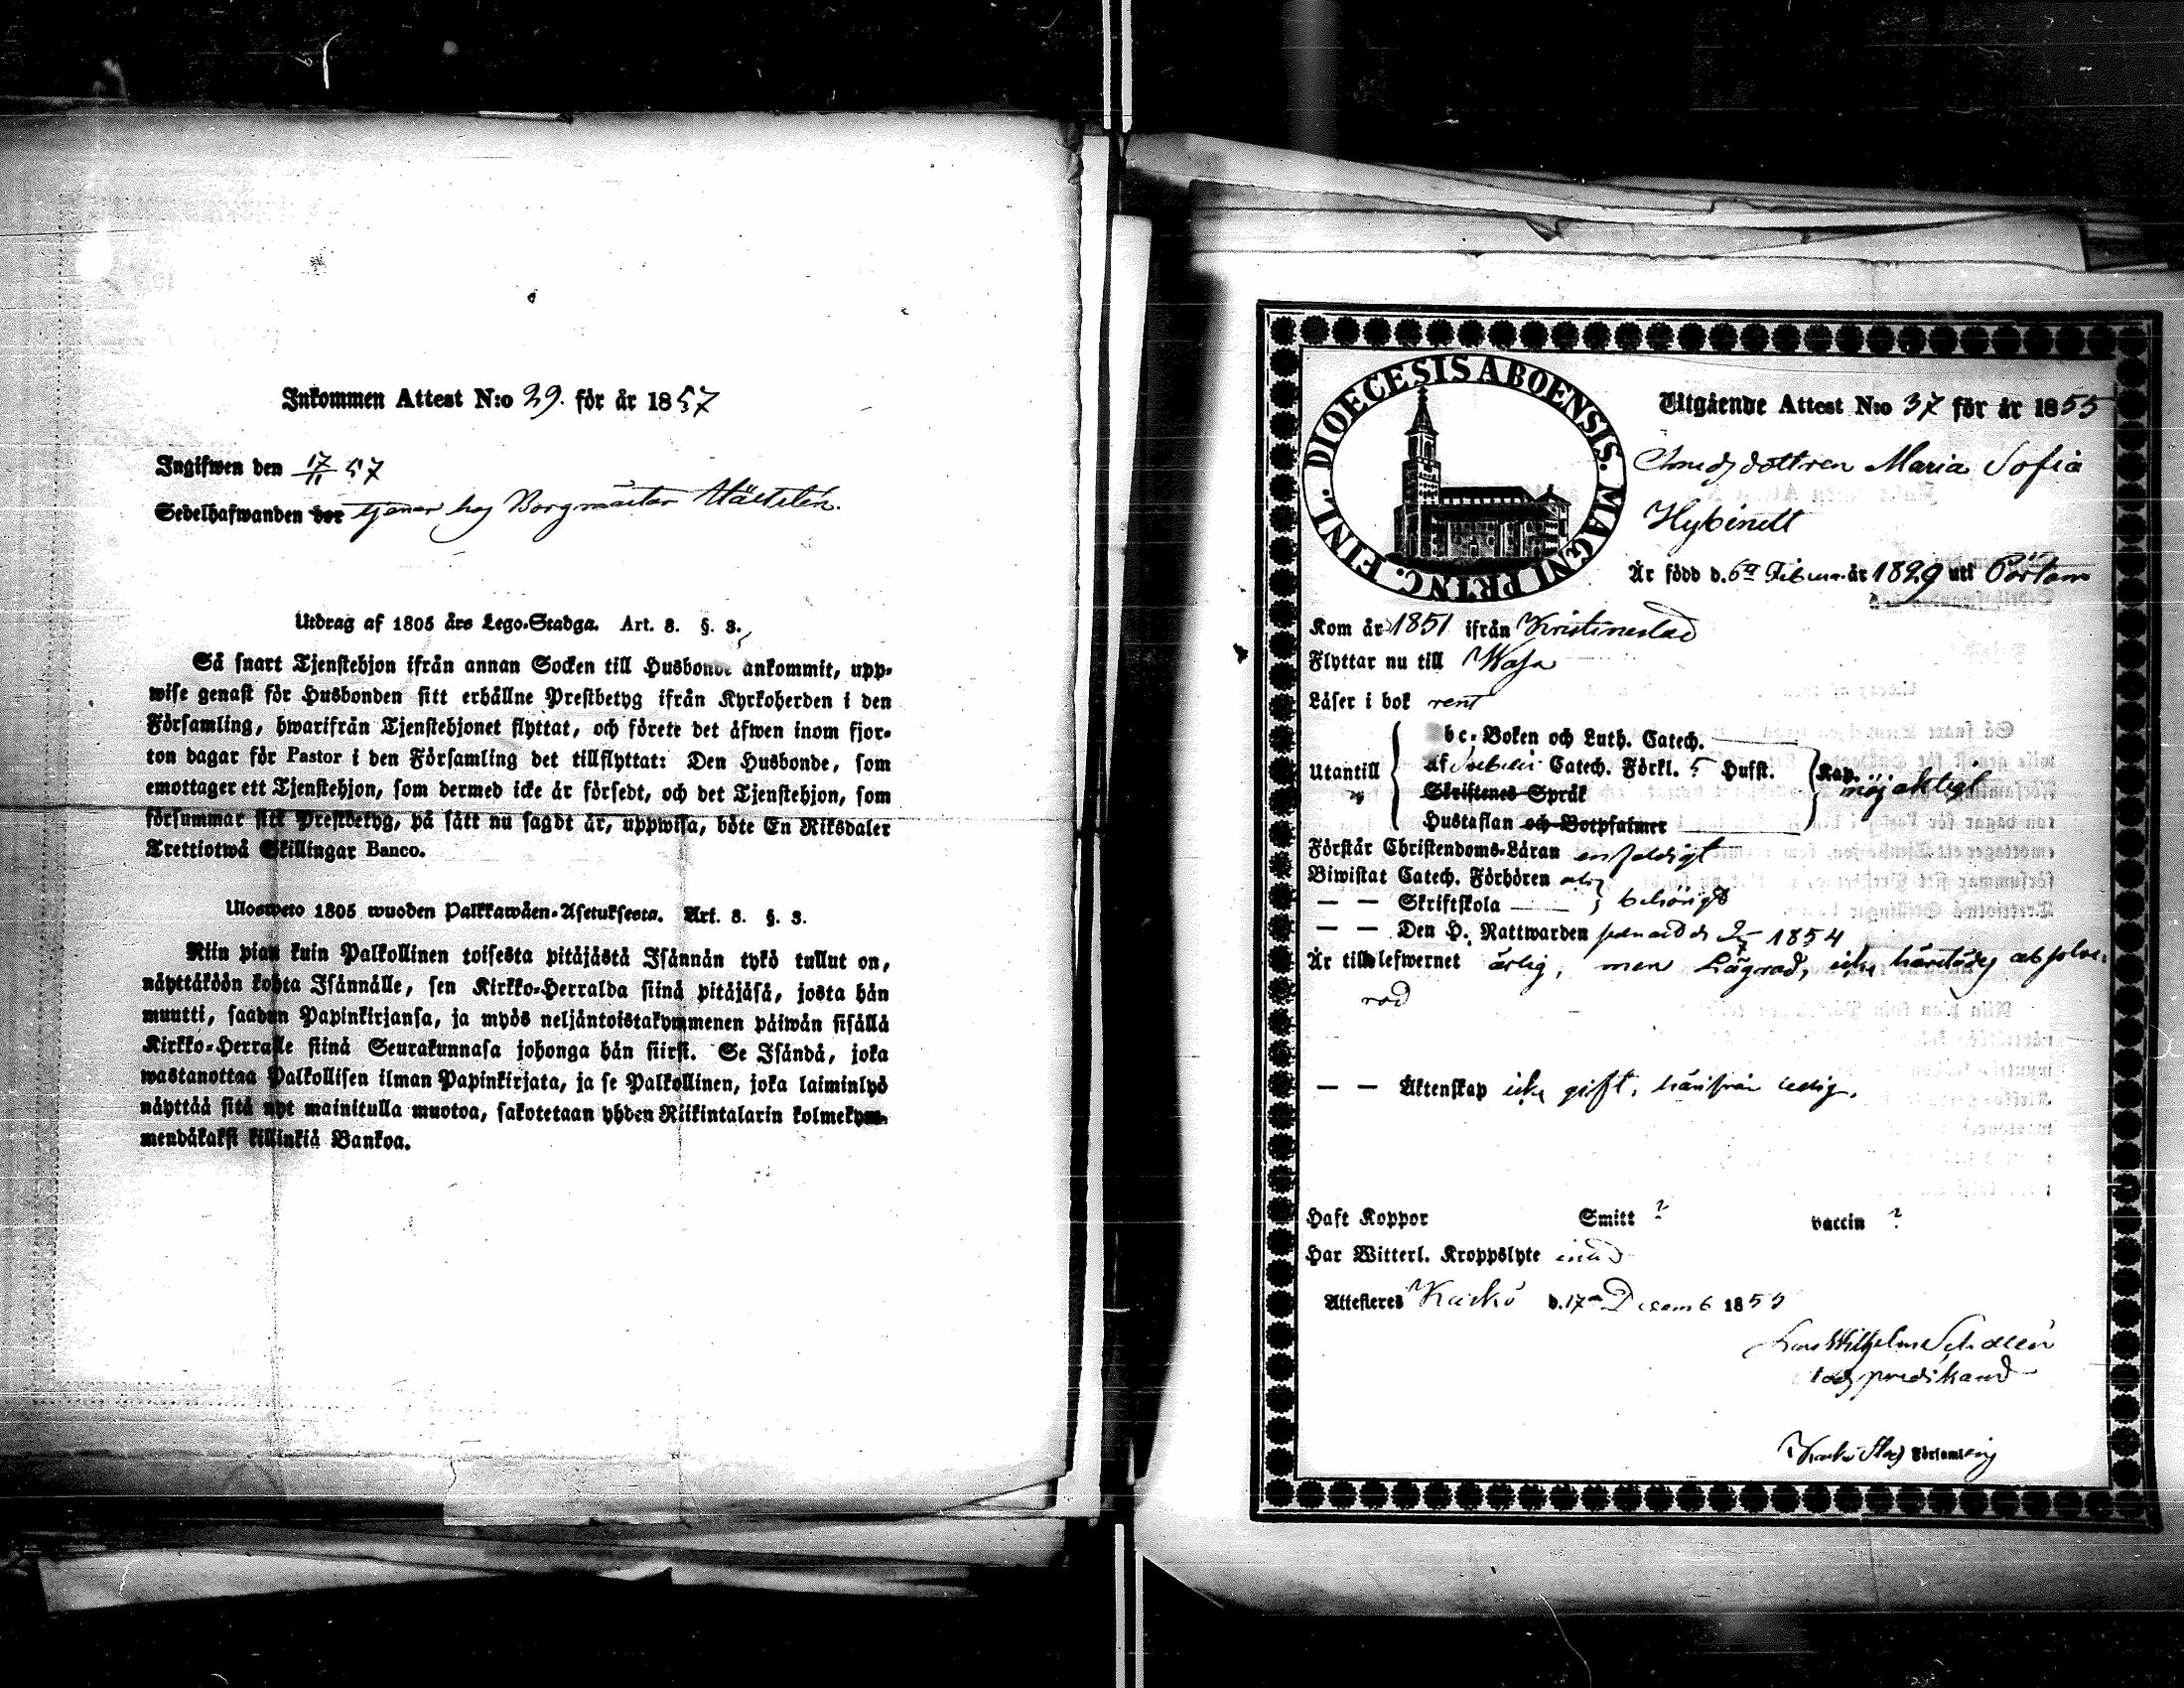 Inkommen Attest N:o 29. för år 1857
Ingifwen den 17/11 57
Sedelhafwanden bor tjenar hos Borgmästar
Utdrag af 1805 års Lego-Stadga. Art. 8. §. 3.
Så snart Tjenstehjon ifrån annan Socken till Husbonde ankommit, upp-
wise genast för Husbonden sitt erhållne Prestbetyg ifrån Kyrkoherden i den
Församling, hwarifrån Tjenstehjonet flyttat, och förete det äfwen inom fjor-
ton dagar för Pastor i den Församling det tillflyttat: Den Husbonde, som
emottager ett Tjenstehjon, som dermed icke är försedt, och det Tjenstehjon, som
försummar sitt Prestbetyg, på sätt nu sagdt är, uppwisa, böte En Riksdaler
Trettiotwå Skillingar Banco.
Ulosweto 1805 wuoden Palkkawäen-Asetuksesta. Art. 8. §. 3.
Niin pian kuin Palkollinen toisesta pitäjästä Isännän tykö tullut on,
näyttäköön kohta Isännälle, sen Kirkko-Herralda siinä pitäjäsä, josta hän
muutti, saadun Papinkirjansa, ja myös neljäntoistakymmenen päiwän sisällä
Kirkko-Herralle siinä Seurakunnasa johonga hän siirst. Se Isändä, joka
wastanottaa Palkollisen ilman Papinkirjata, ja se Palkollinen, joka laiminlyö
näyttää sitä nyt mainitulla muotoa, sakotetaan yhden Riikintalarin kolmekym-
mendäkaksi killinkiä Bankoa.
DIOECESIS ABOENSIS. MAGNI PRINC. FINL.
Utgående Attest N:o 37 för år 1855
Smedsdottren Maria Sofia
Hybinett
Är född d. 6te Februar. år 1829 uti Pörtom
Kom år 1851 ifrån Kristinestad
Flyttar nu till Wasa
Läser i bok rent
bc-Boken och Luth. Catech.
Utantill af Svebelii Catech. Förkl. 5 Hufst. Kap. nöjaktigt
Skriftenes Språk
Hustaflan och Botpsalmer
Förstår Christendoms-Läran enfaldigt
Biwistat Catech. Förhören
— — Skriftskola behörigt
— — Den H. Nattwarden 1854
Är till lefwernet ärlig, men Lägrad, icke härstädes absolve-
rad
— — Äktenskap icke gift, härifrån ledig.
Haft Koppor Smitt ? vaccin ?
Har Witterl. Kroppslyte
Attesteres Kaskö d. 17de Decemb 1855
Wilhelm
predikand
Kaskö Stads Församling